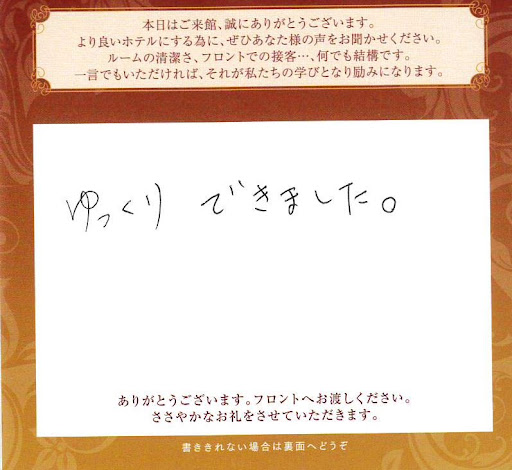 本日はご来館、誠にありがとうございます。
より良いホテルにする為に、ぜひあなた様の声をお聞かせください。
ルームの清潔さ、フロントでの接客…、何でも結構です。
一言でもいただければ、それが私たちの学びとなり励みになります。
ゆっくり できました。
ありがとうございます。フロントへお渡しください。
ささやかなお礼をさせていただきます。
書ききれない場合は裏面へどうぞ